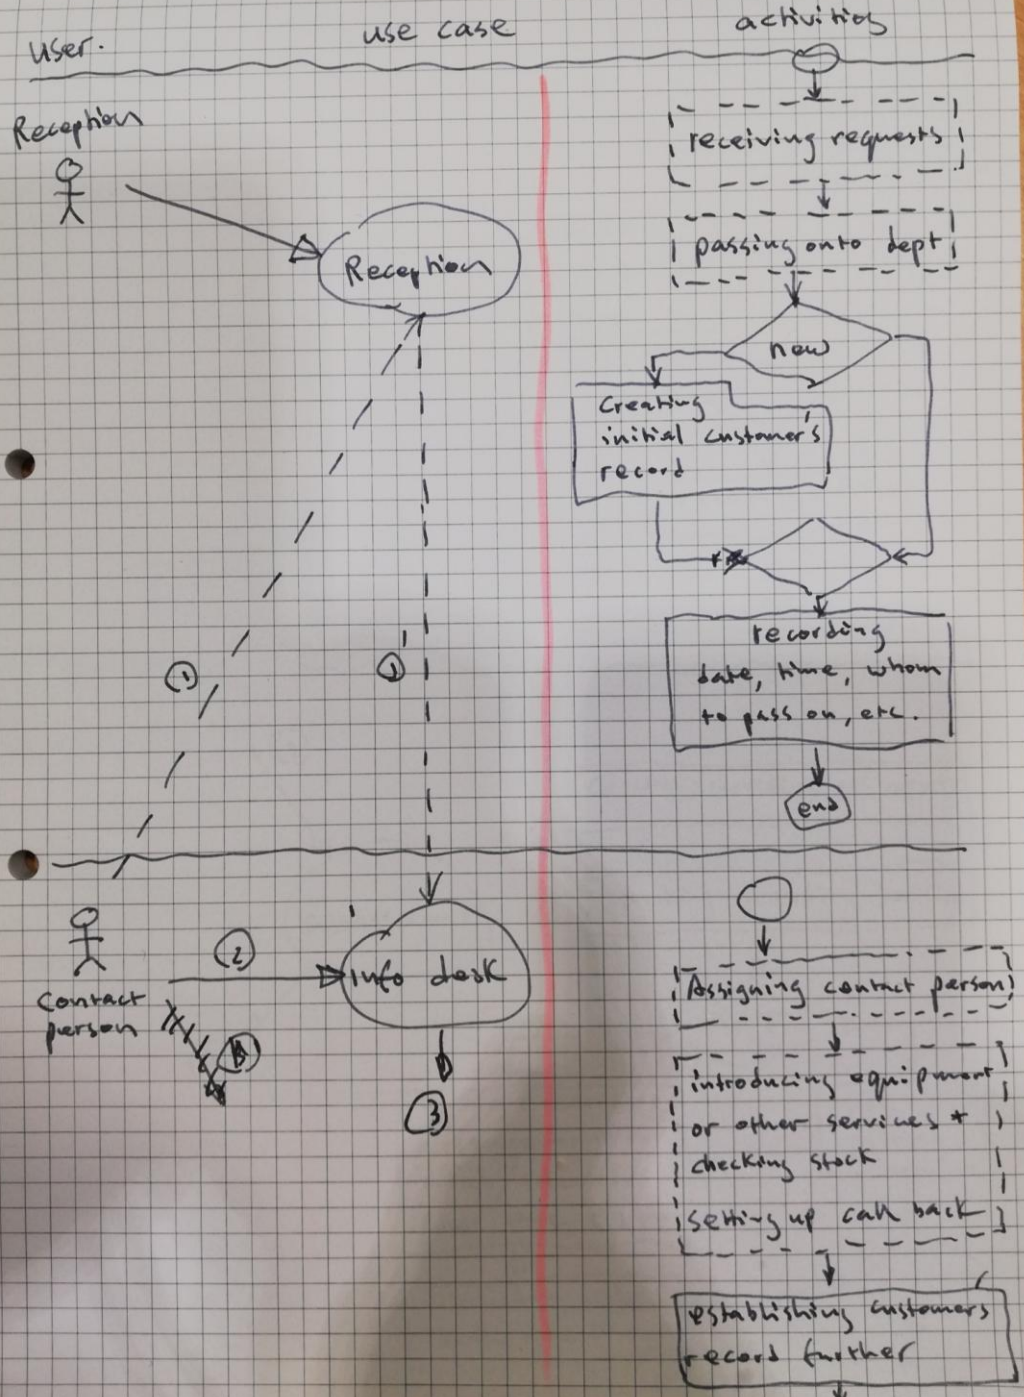 user.
use case
activities
Reception
receiving requests
Reception
passing onto dept
new
Creating
initial customer's
record
recording
date, time, whom
to pass on, etc.
1
1'
end
2
info desk
Contact
person
3
Assigning contact person
introducing equipment
or other services +
checking stock
setting up call back
establishing customers
record further